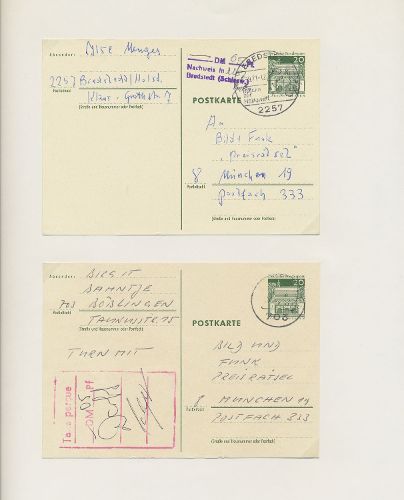 Absender:
Alse Menges
2257 Bredstedt/Holst.
Postleitzahl
Klaus-Groth-Str. 7
(Straße und Hausnummer oder Postfach)
DM
Nachweis in
Bredstedt (Schlesw.)
BREDSTEDT
2257
20
POSTKARTE
An
Bild + Funk
"Preisrätsel"
8 München 19
Postleitzahl
Postfach 333
(Straße und Hausnummer oder Postfach)
Absender:
BIRGIT
DAHNTJE
703 BÖBLINGEN
Postleitzahl
TAUNUSSTR. 75
(Straße und Hausnummer oder Postfach)
TURN MIT
Taxe perçue
DM Pf
05
703
20
POSTKARTE
BILD UND
FUNK
PREISRÄTSEL
8 MÜNCHEN 19
Postleitzahl
POSTFACH 333
(Straße und Hausnummer oder Postfach)